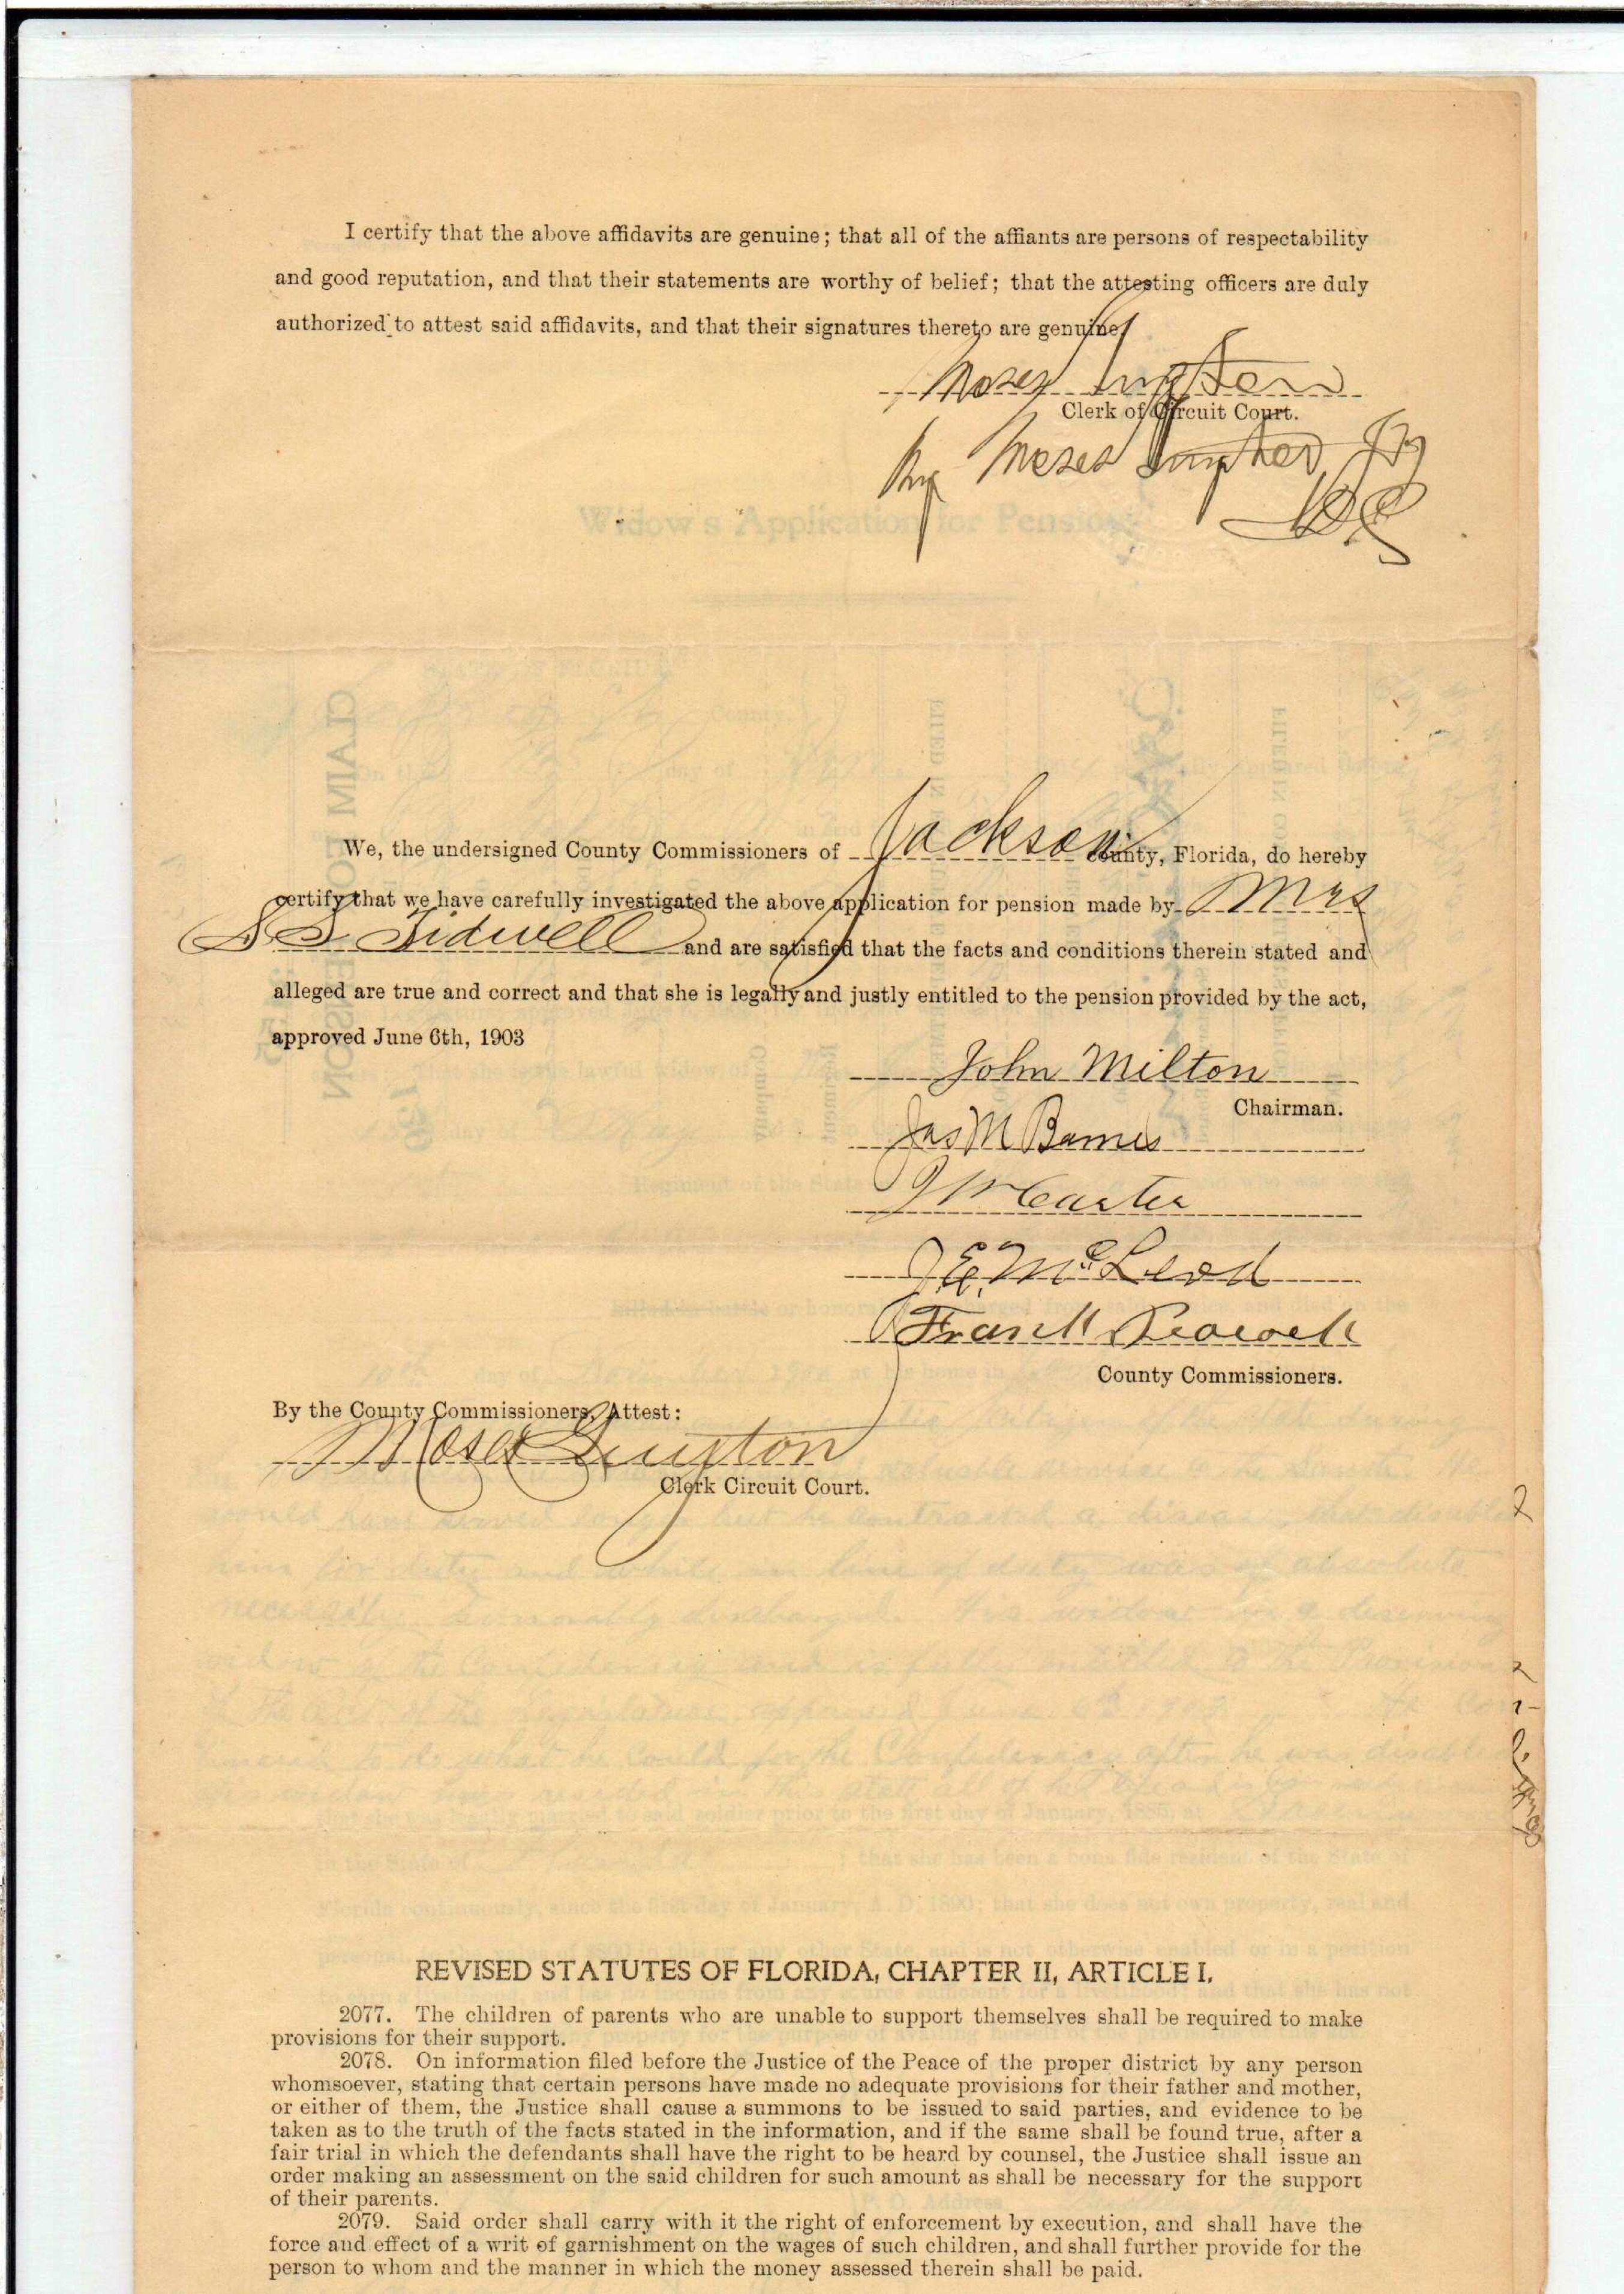 I certify that the above affidavits are genuine; that all of the affiants are persons of respectability
and good reputation, and that their statements are worthy of belief; that the attesting officers are duly
authorized to attest said affidavits, and that their signatures thereto are genuine.
Moses Guyton
Clerk of Circuit Court.
By Moses Guyton Jr
D.C.
Widow's Application for Pension
We, the undersigned County Commissioners of Jackson County, Florida, do hereby
certify that we have carefully investigated the above application for pension made by Mrs
S S Tidwell and are satisfied that the facts and conditions therein stated and
alleged are true and correct and that she is legally and justly entitled to the pension provided by the act,
approved June 6th, 1903
John Milton
Chairman.
Jas M Barnes
Carter
J E McLeod
Frank Peacock
County Commissioners.
By the County Commissioners, Attest:
Moses Guyton
Clerk Circuit Court.
REVISED STATUTES OF FLORIDA, CHAPTER II, ARTICLE I.
2077. The children of parents who are unable to support themselves shall be required to make
provisions for their support.
2078. On information filed before the Justice of the Peace of the proper district by any person
whomsoever, stating that certain persons have made no adequate provisions for their father and mother,
or either of them, the Justice shall cause a summons to be issued to said parties, and evidence to be
taken as to the truth of the facts stated in the information, and if the same shall be found true, after a
fair trial in which the defendants shall have the right to be heard by counsel, the Justice shall issue an
order making an assessment on the said children for such amount as shall be necessary for the support
of their parents.
2079. Said order shall carry with it the right of enforcement by execution, and shall have the
force and effect of a writ of garnishment on the wages of such children, and shall further provide for the
person to whom and the manner in which the money assessed therein shall be paid.